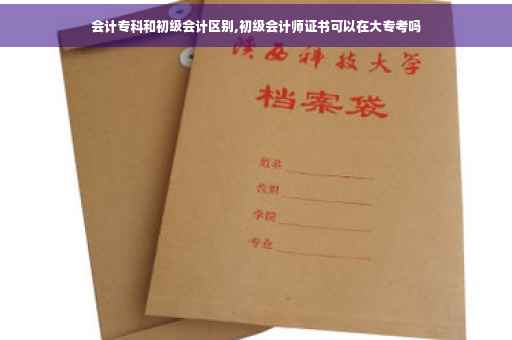 会计专科和初级会计区别,初级会计师证书可以在大专考吗
陕西科技大学
档案袋
姓名
学院
专业